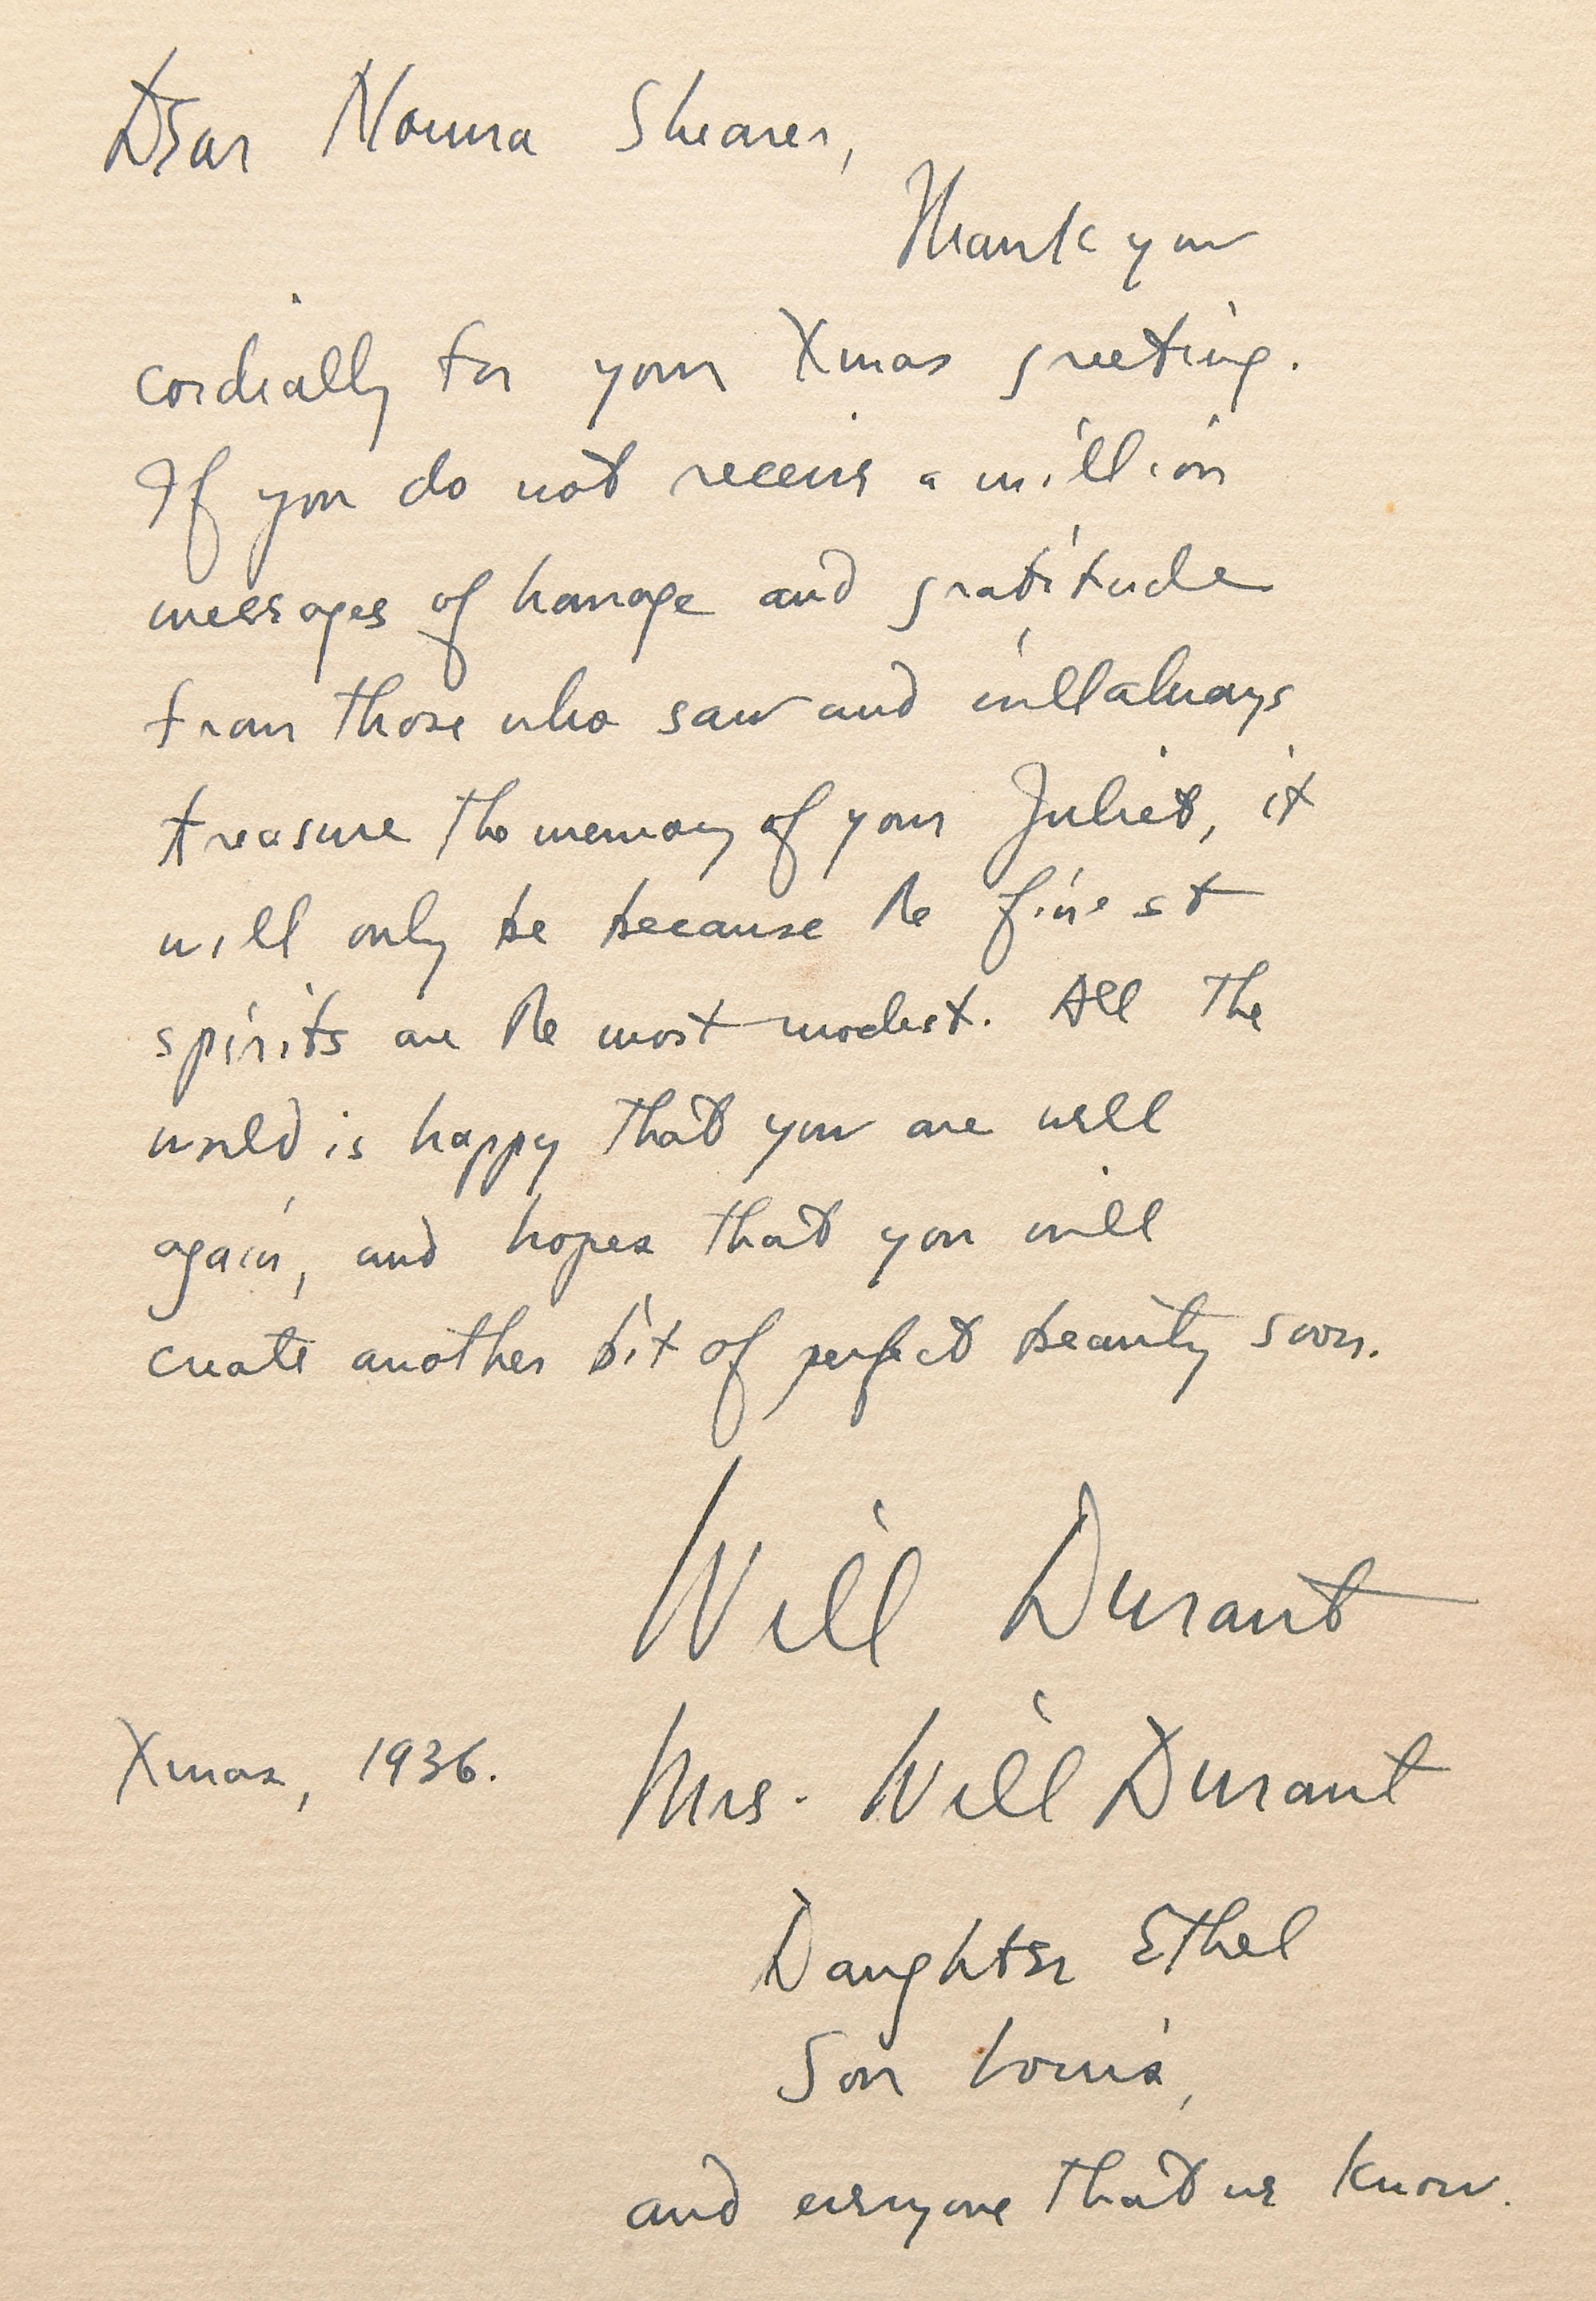 Dear Norma Shearer,
Thank you
cordially for your Xmas greeting.
If you do not receive a million
messages of homage and gratitude
from those who saw and will always
treasure the memory of your Juliet, it
will only be because the finest
spirits are the most modest. All the
world is happy that you are well
again, and hopes that you will
create another bit of perfect beauty soon.
Will Durant
Xmas, 1936. Mrs. Will Durant
Daughter Ethel
Son Louis,
and everyone that we know.